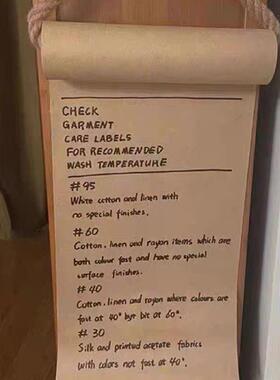 CHECK
GARMENT
CARE LABELS
FOR RECOMMENDED
WASH TEMPERATURE
#95
White cotton and linen with
no special finishes.
#60
Cotton, linen and rayon items which are
both colour fast and have no special
surface finishes.
#40
Cotton, linen and rayon where colours are
fast at 40° byr bit at 60°.
#30
Silk and printed acetate fabrics
with colors not fast at 40°.